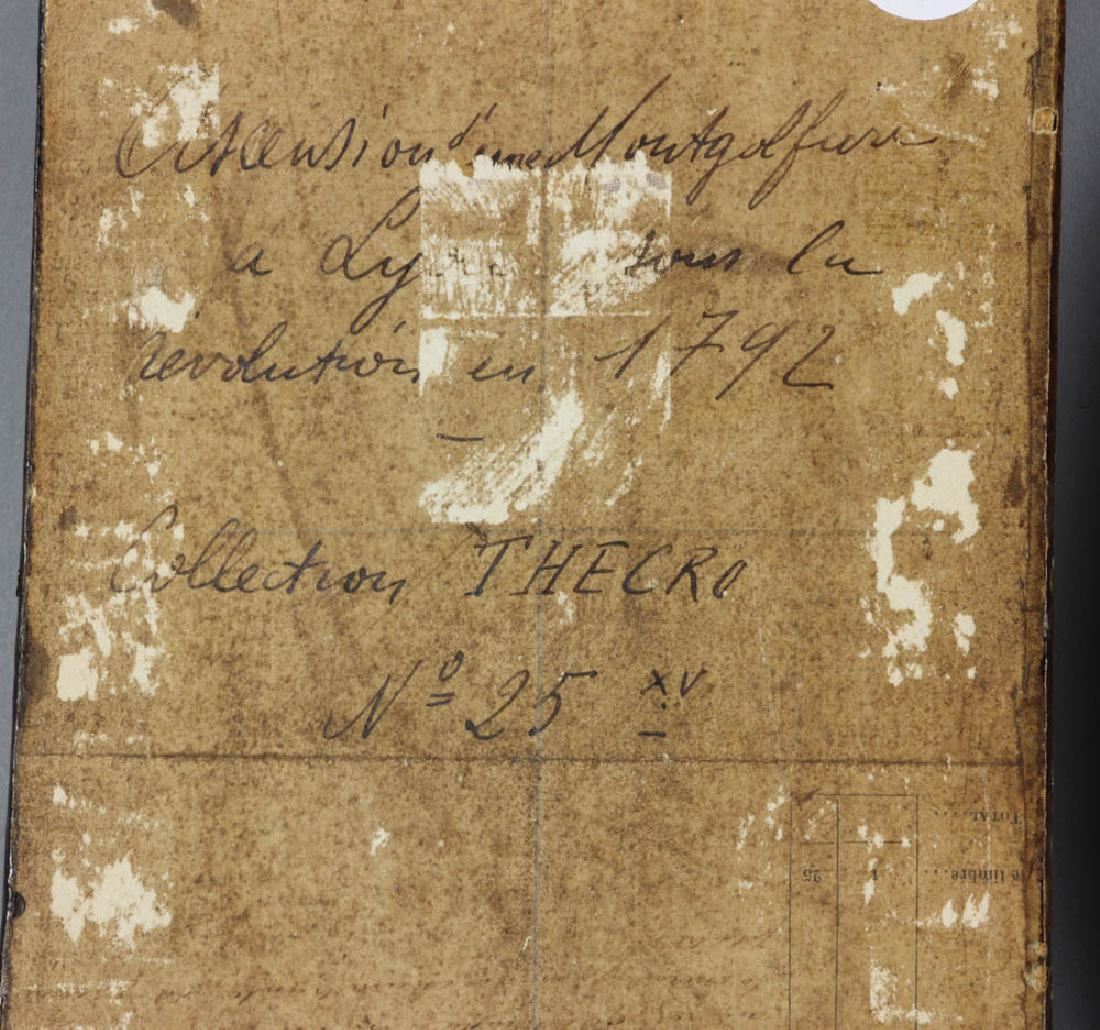 Ascension d'une Montgolfiere
a Lyon sous la
révolution en 1792
Collection THECRO
Nº 25 XV
TOTAL....
e timbre.... 1 25